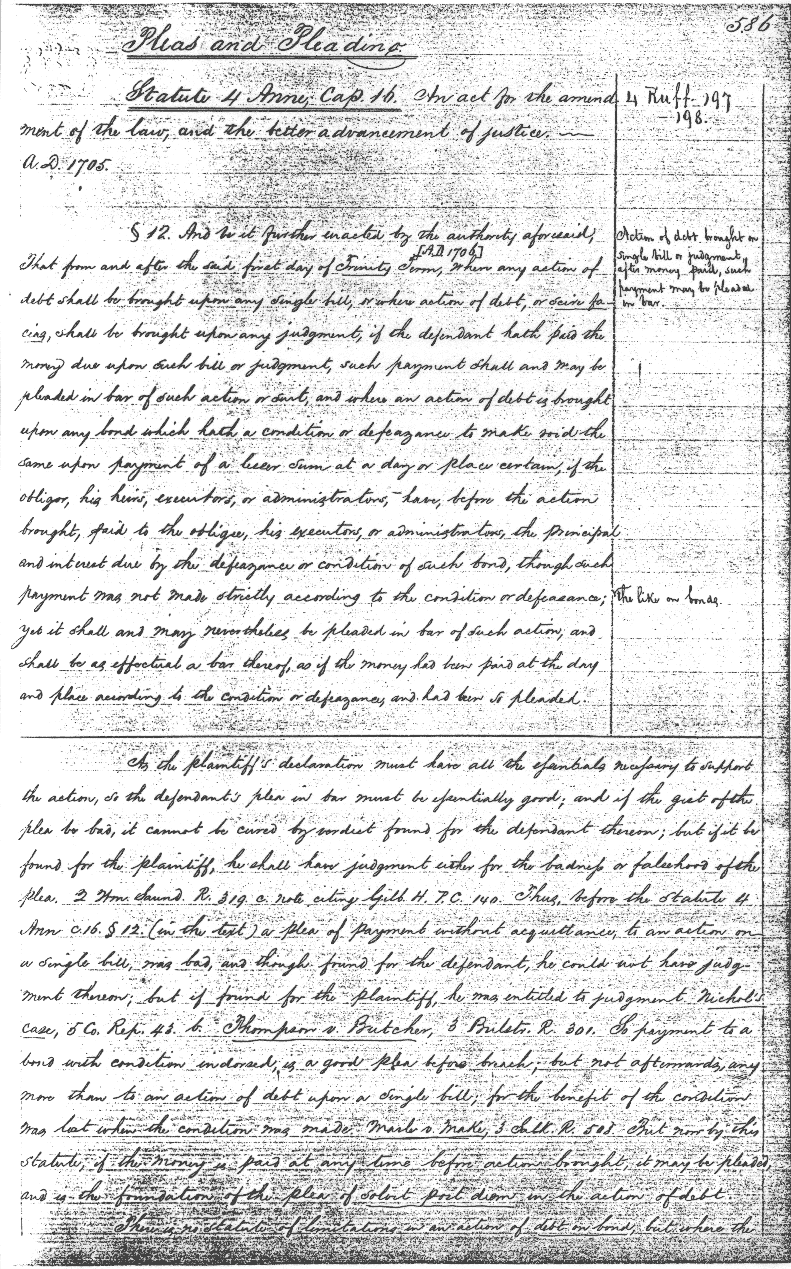 586
Pleas and Pleading
Statute 4 Anne, Cap. 16. An act for the amend
ment of the law, and the better advancement of justice. —
A.D. 1705.
4 Ruff. 197
— 198.
§ 12. And be it further enacted by the authority aforesaid,
[A.D. 1706]
That from and after the said first day of Trinity Term, where any action of
debt shall be brought upon any single bill, or where action of debt, or scire fa-
cias, shall be brought upon any judgment, if the defendant hath paid the
money due upon such bill or judgment, such payment shall and may be
pleaded in bar of such action or suit, and where an action of debt is brought
upon any bond which hath a condition or defeazance to make void the
same upon payment of a lesser sum at a day or place certain, if the
obligor, his heirs, executors, or administrators, have, before the action
brought, paid to the obligee, his executors, or administrators, the principal
and interest due by the defeazance or condition of such bond, though such
payment was not made strictly according to the condition or defeasance;
yet it shall and may nevertheless be pleaded in bar of such action, and
shall be as effectual a bar thereof, as if the money had been paid at the day
and place according to the condition or defeazance, and had been so pleaded.
Action of debt brought on
single bill or judgment,
after money paid, such
payment may be pleaded
in bar.
The like on bonds.
As the plaintiff's declaration must have all the essentials necessary to support
the action, so the defendant's plea in bar must be essentially good; and if the gist of the
plea be bad, it cannot be cured by verdict found for the defendant thereon; but if it be
found for the plaintiff, he shall have judgment either for the badness or falsehood of the
plea. 2 Wm. Saund. R. 319. c. note citing Gilb. H. P. C. 140. Thus, before the Statute 4
Ann c. 16. § 12. (in the text) a plea of payment without acquittance, to an action on
a single bill, was bad, and though found for the defendant, he could not have judg-
ment thereon; but if found for the plaintiff, he was entitled to judgment. Nichol's
case, 5 Co. Rep. 43. b. Thompson v. Butcher, 3 Bulstr. R. 301. So payment to a
bond with condition indorsed, is a good plea before breach; but not afterwards, any
more than to an action of debt upon a single bill; for the benefit of the condition
was lost when the condition was made. Masle v. Make, 3 Salk. R. 508. But now by this
statute, if the money is paid at any time before action brought, it may be pleaded,
and is the foundation of the plea of solvit post diem in the action of debt.
There is no statute of limitations in an action of debt on bond, but where the